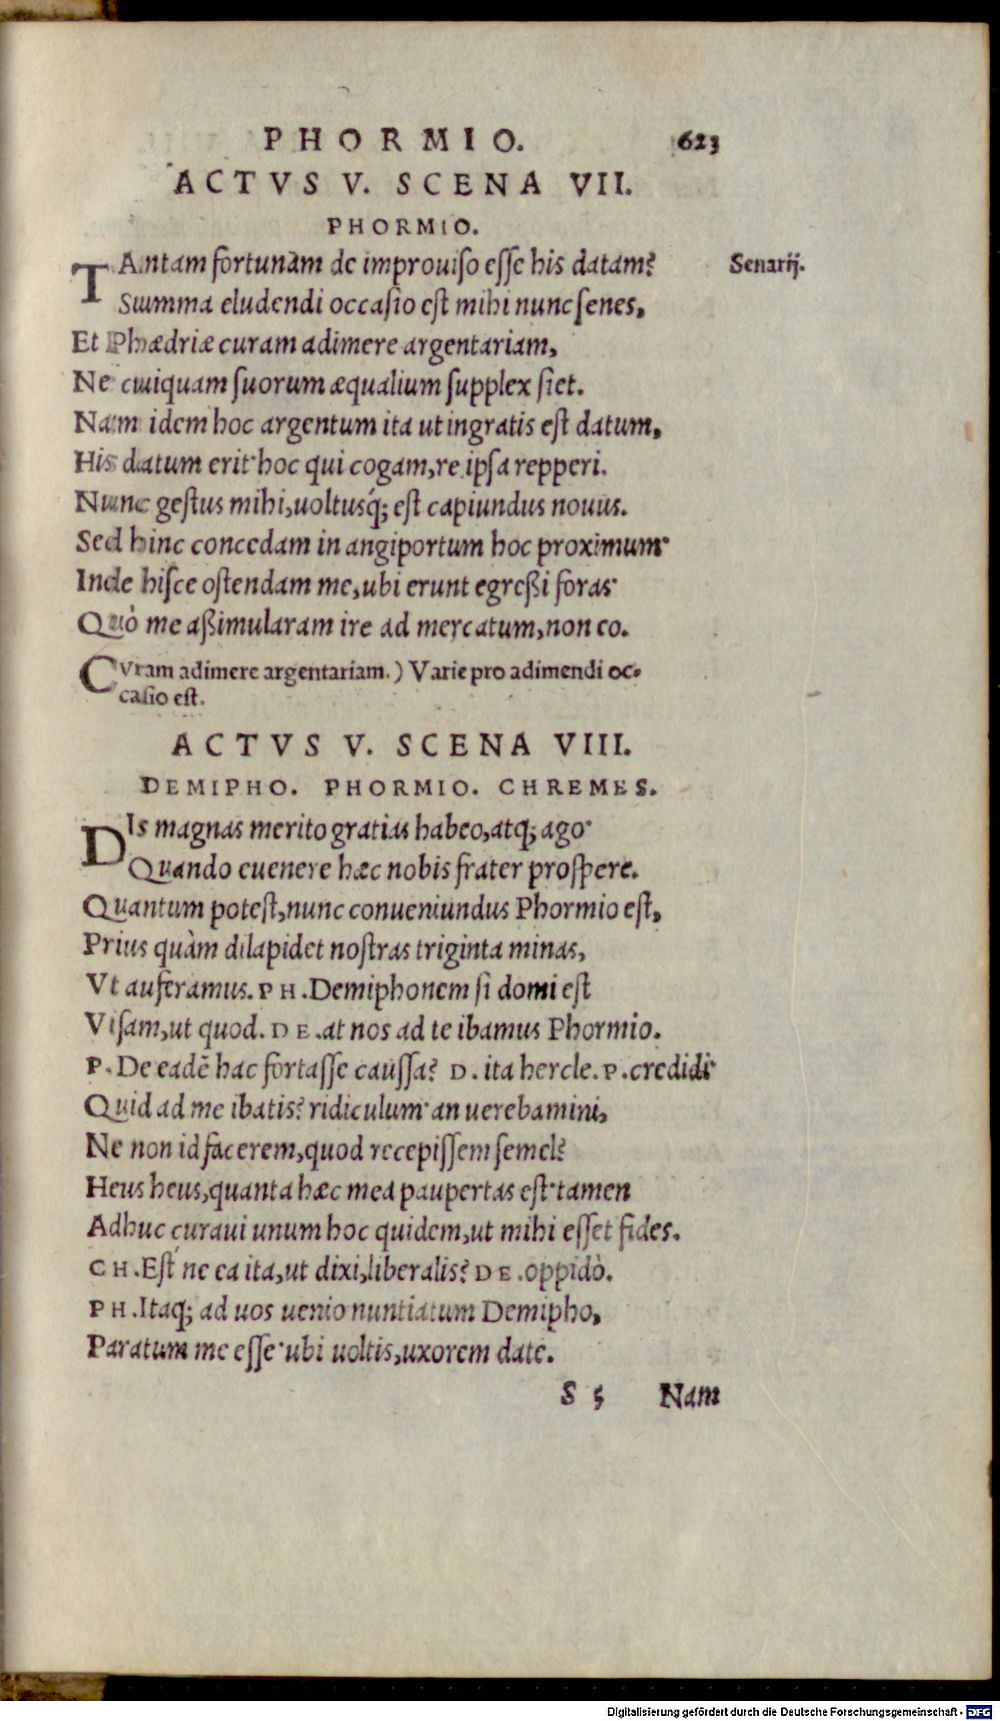 PHORMIO. 623
ACTVS V. SCENA VII.
PHORMIO.
TAntam fortunam de improuiso esse his datam? Senarij.
Summa eludendi occasio est mihi nunc senes,
Et Phædriæ curam adimere argentariam,
Ne cuiquam suorum æqualium supplex siet.
Nam idem hoc argentum ita ut ingratis est datum,
His datum erit· hoc qui cogam, re ipsa repperi.
Nunc gestus mihi, uoltusq́; est capiundus nouus.
Sed hinc concedam in angiportum hoc proximum·
Inde hisce ostendam me, ubi erunt egreßi foras·
Quò me aßimularam ire ad mercatum, non eo.
CVram adimere argentariam.) Varie pro adimendi oc-
casio est.
ACTVS V. SCENA VIII.
DEMIPHO. PHORMIO. CHREMES.
DIs magnas merito gratias habeo, atq; ago·
Quando euenere hæc nobis frater prospere.
Quantum potest, nunc conueniundus Phormio est,
Prius quàm dilapidet nostras triginta minas,
Vt auferamus. PH. Demiphonem si domi est
Visam, ut quod. DE. at nos ad te ibamus Phormio.
P. De eadē hac fortasse caussa? D. ita hercle. P. credidi·
Quid ad me ibatis? ridiculum· an uerebamini,
Ne non id facerem, quod recepissem semel?
Heus heus, quanta hæc mea paupertas est· tamen
Adhuc curaui unum hoc quidem, ut mihi esset fides.
CH. Est́ ne ea ita, ut dixi, liberalis? DE. oppidò.
PH. Itaq; ad uos uenio nuntiatum Demipho,
Paratum me esse· ubi uoltis, uxorem date.
S 5 Nam
Digitalisierung gefördert durch die Deutsche Forschungsgemeinschaft - DFG